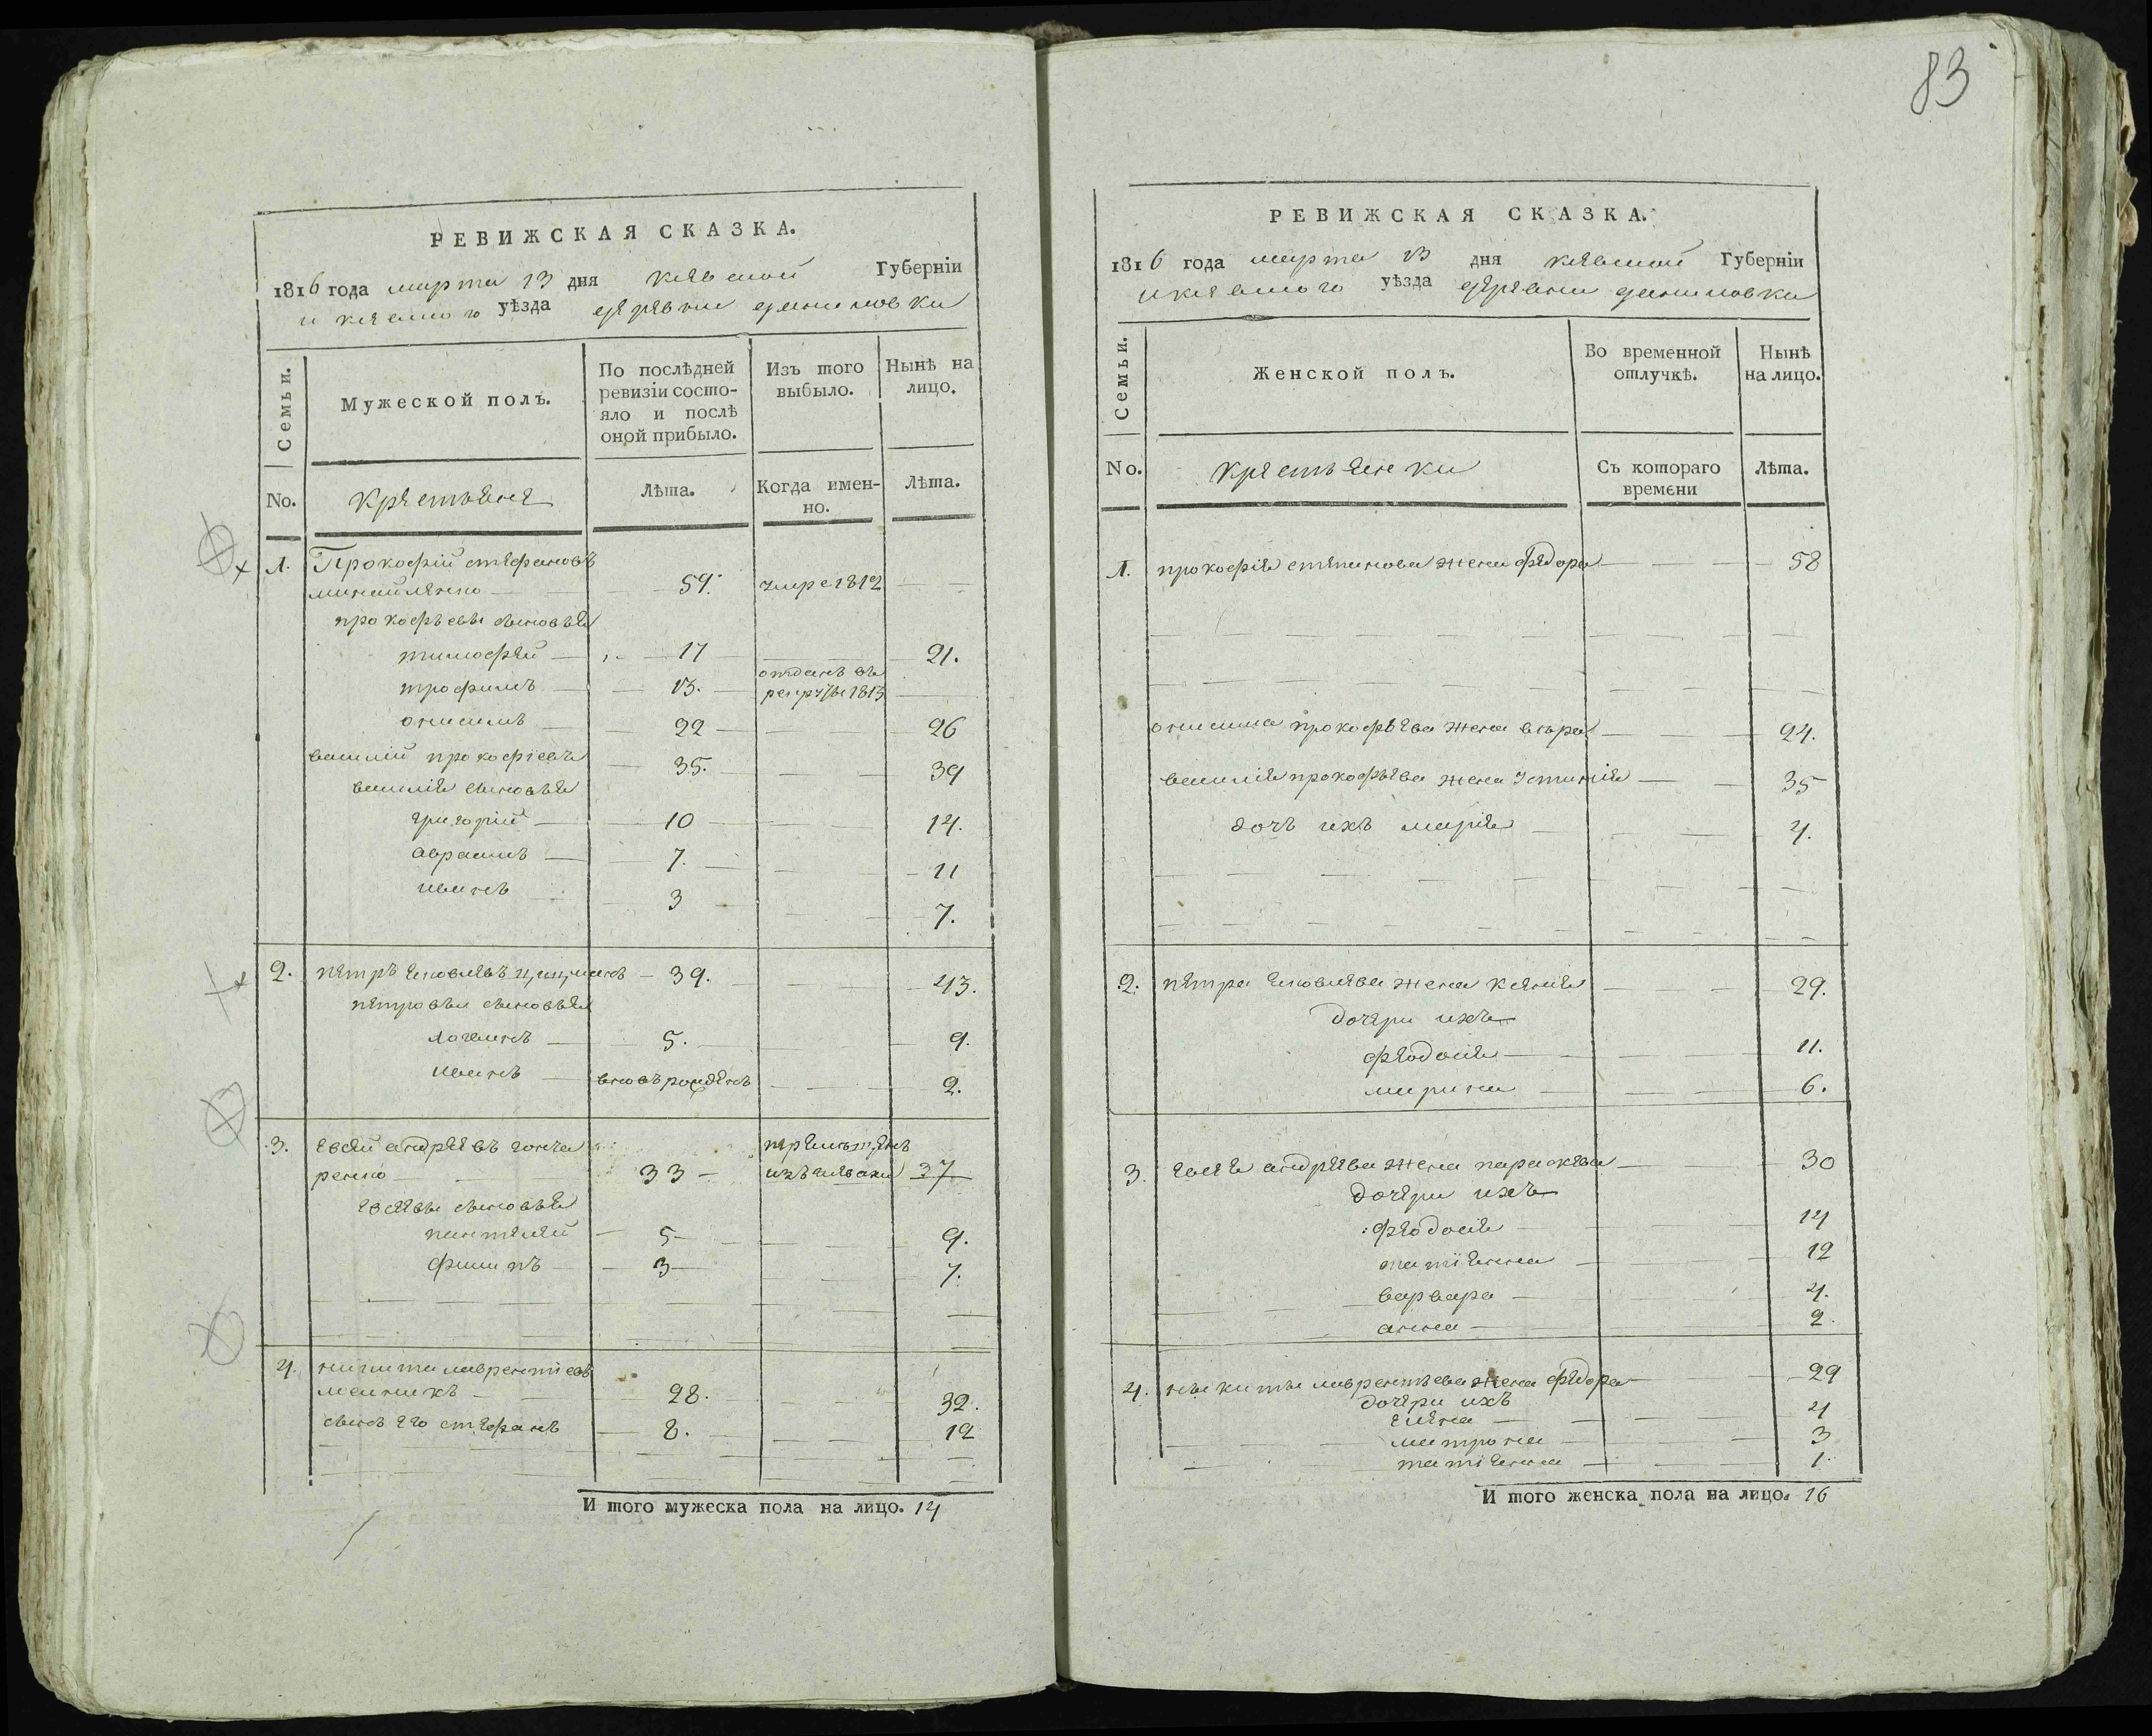 83
РЕВИЖСКАЯ СКАЗКА.
1816 года марта 13 дня киевской Губерніи
и киевского уѣзда деревни даниловки
Семьи.
Мужеской полъ.
По послѣдней ревизіи состояло и послѣ оной прибыло.
Изъ того выбыло.
Нынѣ на лицо.
No.
крестьяне
Лѣта.
Когда именно.
Лѣта.
1. Прокофій стефановъ
михайленко 59. умре 1812
прокофьевы сыновья
тимофей 17 21.
трофимъ 13. отданъ въ рекруты 1813
онисимъ 22 26
василій прокофіевъ 35. 39
василія сыновья
григорій 10 14.
аврамъ 7. 11
иванъ 3 7.
2. петръ яковлевъ 39. 43.
петровы сыновья
логвинъ 5. 9.
иванъ вновь рожденъ 2.
3. евсей андреевъ гонча
ренко 33 37
евсеевы сыновья
пантелей 5 9.
филипъ 3 7.
4. никита лаврентіевъ
мельникъ 28. 32.
сынъ его стефанъ 8. 12
И того мужеска пола на лицо. 14
РЕВИЖСКАЯ СКАЗКА.
1816 года марта 13 дня киевской Губерніи
и киевского уѣзда деревни даниловки
Семьи.
Женской полъ.
Во временной отлучкѣ.
Нынѣ на лицо.
No.
крестьянки
Съ котораго времени
Лѣта.
1. прокофія степанова жена федора 58
онисима прокофьева жена вѣра 24.
василія прокофьева жена устинія 35
дочь ихъ марія 4.
2. петра яковлева жена ксенія 29.
дочери ихъ
феодосія 11.
марина 6.
3. евсея андреева жена параскева 30
дочери ихъ
феодосія 14
татіянна 12
варвара 4.
анна 2.
4. никиты лаврентьева жена федора 29
дочери ихъ
елена 4
матрона 3
татіянна 1.
И того женска пола на лицо. 16